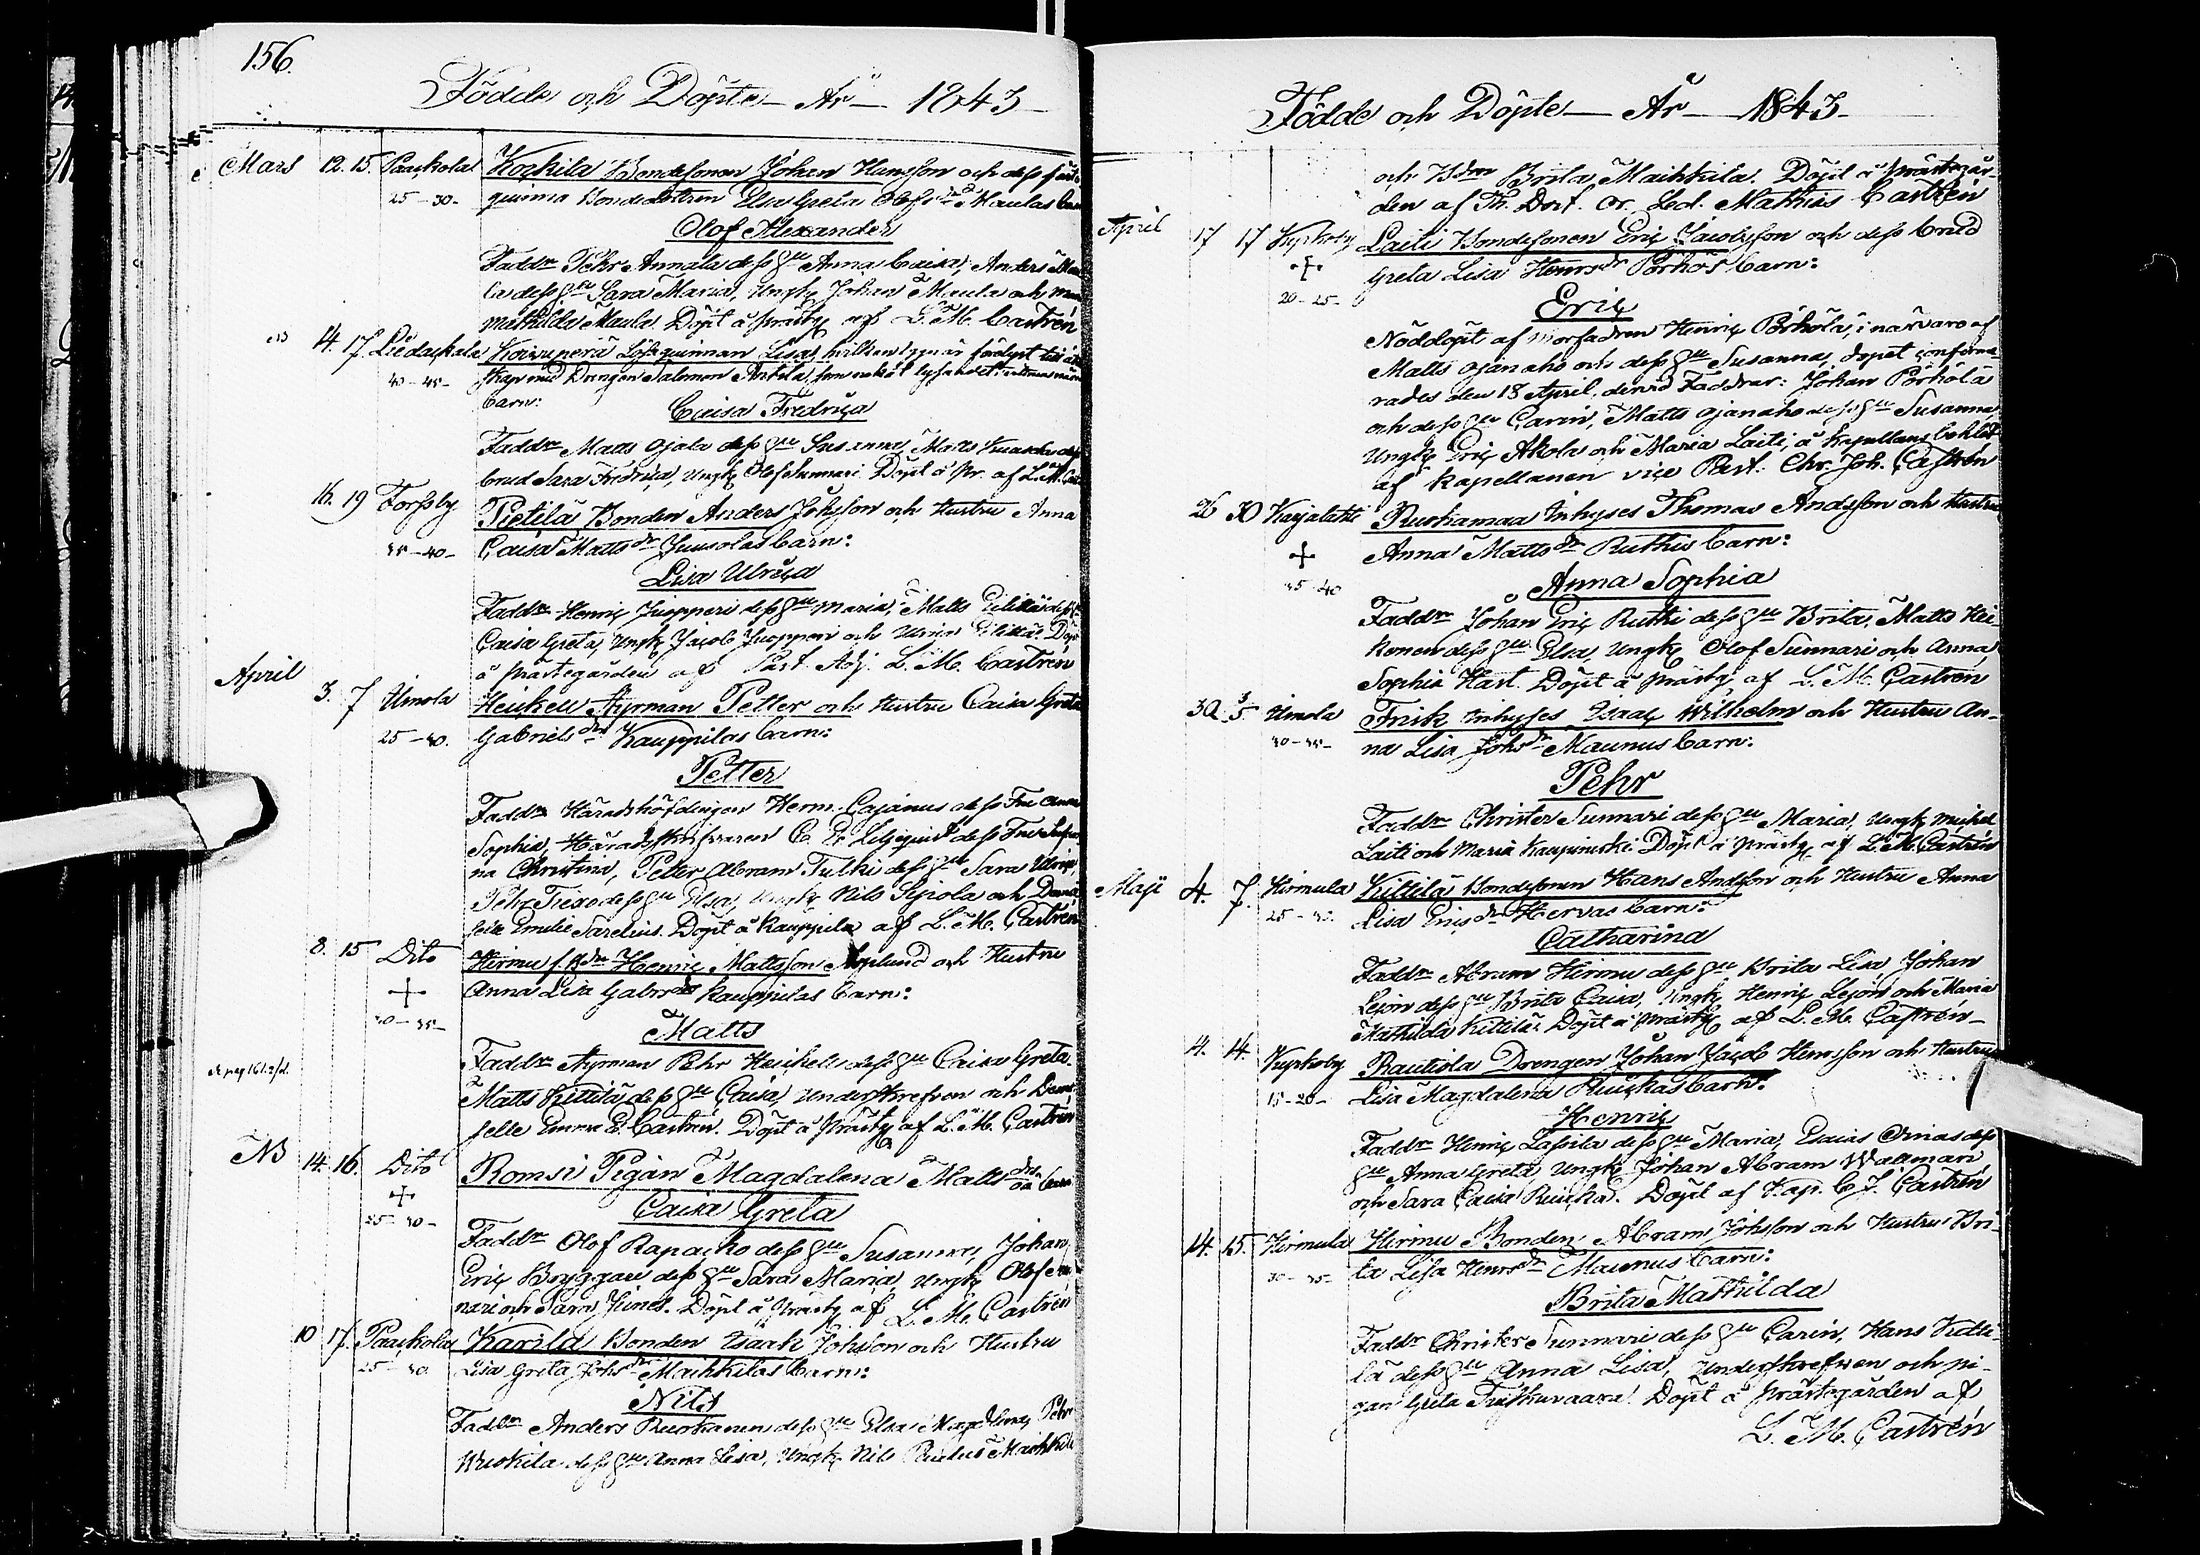 156.
Födde och Döpte — År — 1843
Mars 12. 15. Paackola Kockila Bondesonen Johan Hansson och dess
25–30– Elsa Greta Olofs dr Maulas
Olof Alexander
Faddr Pehr Annala dess Hu Anna Caisa, Anders
la dess Hu Sara Maria, Ungk Johan Maula och
Mathilda Maula. Döpt å prästg af L. M. Castrén
14. 17. Liedackala Koivuperä Löskquinnan Lisas,
40–45– Drengen Salomon Anttila,
barn:
Caisa Fredrica
Faddr Matts Ojala dess Hu Susanna, Matts
brud Sara Fredrica, Ungk Olof Sunnari. Döpt å Pr. af L. M.
16. 19 Forssby Pietilä Bonden Anders Johsson och Hustru Anna
35–40– Caisa Matts dr Juusolas barn:
Lisa Ulrica
Faddr Henric Juopperi dess Hu Maria, Matts
Caisa Greta, Ungk Jacob Juopperi och
å prästegården af Past. Adj. L. M. Castrén
April 3. 7 Umola Heickell Styrman Petter och Hustru Caisa Greta
25–30. Gabriels dr Kauppilas barn:
Petter
Faddr Häradshöfdingen Herm. Cajanus dess Fru
Sophia, Häradsskrifvaren C. Er. Liljeqvist dess Fru
na Christina, Petter Abram Tulki dess Hu Sara Ulrica,
dess Hu Elsa, Ungk Nils och
Emelie Sarelius. Döpt å Kauppila af L. M. Castrén
8. 15 Dito Hirmu Henric Mattsson Asplund och Hustru
+ Anna Lisa Gabrs dr Kauppilas barn:
30–35–
Matts
Faddr Styrman Pehr Heickell dess Hu Caisa Greta.
Matts Kittilä dess Hu Caisa, Underskrefven och
selle Emma E. Castrén. Döpt å prästg af L. M. Castrén
NB 14. 16. Dito Romsi Pigan Magdalena Matts dr
+ Caisa Greta
25–30–
Faddr Olof Rapacko dess Hu Susanna, Johan
Eric Bryggare dess Hu Sara Maria, Ungk Olof
nari och Sara Döpt å prästg af L. M. Castrén
10 17. Paackola Karila Bonden Isaak Johsson och Hustru
25–30 Lisa Greta Johs dr Maikkilas barn:
Nils
Faddr Anders Ruokanen dess Hu Elsa Magdlena, Pehr
dess Hu Anna Lisa, Ungk Nils Paulus Maikkila
Födde och Döpte — År — 1843–
och Brita Maikkila. Döpt å prästegår-
den af Th. Doct. Mathias Castrén
April 17 17 Kyrkoby Laiti Bondesonen Eric Jacobsson och dess brud
+ Greta Lisa Henrs dr Pörhös barn:
20–25–
Eric
Nöddöpt af morfadren Henric Pörhölä, i närvaro af
Matts Ojanaho och dess Hu Susanna, dopet confirme-
rades den 18 April, Faddrar: Johan Pörhölä
och dess Hu Carin, Matts Ojanaho dess Hu Susanna,
Ungk Eric Akola och Maria Laiti, å Kapellans
af Kapellanen vice Past. Chr. Joh. Castrén
26 30 Karjalahti Ruokamaa Inhyses Thomas Andsson och Hustru
+ Anna Matts dr Ruthis barn:
35–40
Anna Sophia
Faddr Johan Eric Ruthi dess Hu Brita, Matts Hei-
konen dess Hu Elsa, Ungk Olof Sunnari och Anna
Sophia Hast. Döpt å prästg af L. M. Castrén
30. 3/5 Umola Frisk Inhyses Isaac Wilhelm och Hustru An-
30–35– na Lisa Johs dr Maunus barn:
Pehr
Faddr Christer Sunnari dess Hu Maria, Ungk Michel
Laiti och Maria Döpt å prästg af L. M. Castrén
Maji 4. 7. Hirmula Kittilä Bondesonen Hans Andsson och Hustru Anna
25–30. Lisa Erics dr Hervas barn:
Catharina
Faddr Abram Hirmu dess Hu Brita Lisa, Johan
Lejon dess Hu Brita Caisa, Ungk Henric Lejon och Maria
Mathilda Kittilä. Döpt å prästg af L. M. Castrén–
4. 14. Kyrkoby Rautiola Drengen Johan Jacob Henrsson och Hustru
15–20– Lisa Magdalena Ruickas barn:
Henric
Faddr Henric Lassila dess Hu Maria, Esaias dess
Hu Anna Greta, Ungk Johan Abram Wallman
och Sara Caisa Ruicka. Döpt af Kap. C. J. Castrén
14. 15. Hirmula Hirmu Bonden Abram Johsson och Hustru Bri-
30–35– ta Lisa Henrs dr Maunus barn:
Brita Mathilda
Faddr Christer Sunnari dess Hu Carin, Hans Kitti-
lä dess Hu Anna Lisa, Underskrefven och pi-
gan Greta Döpt å prästegården af
L. M. Castrén